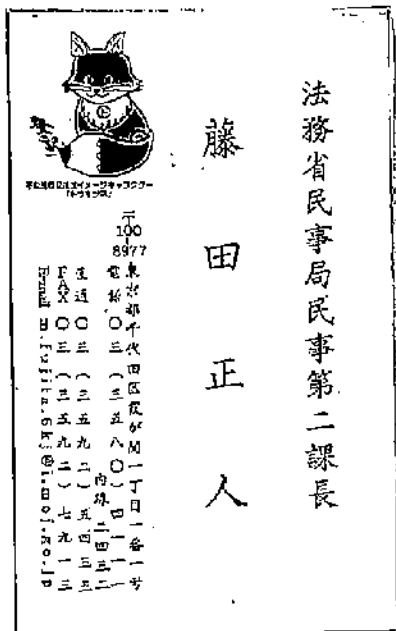 法務省民事局民事第二課長
藤田正人
不動産登記推進イメージキャラクター
「トウキツネ」
〒100-8977
東京都千代田区霞が関一丁目一番一号
電話〇三(三五八〇)四一一一
内線二四三二
直通〇三(三五九二)五四三五
FAX〇三(三五九二)七九一三